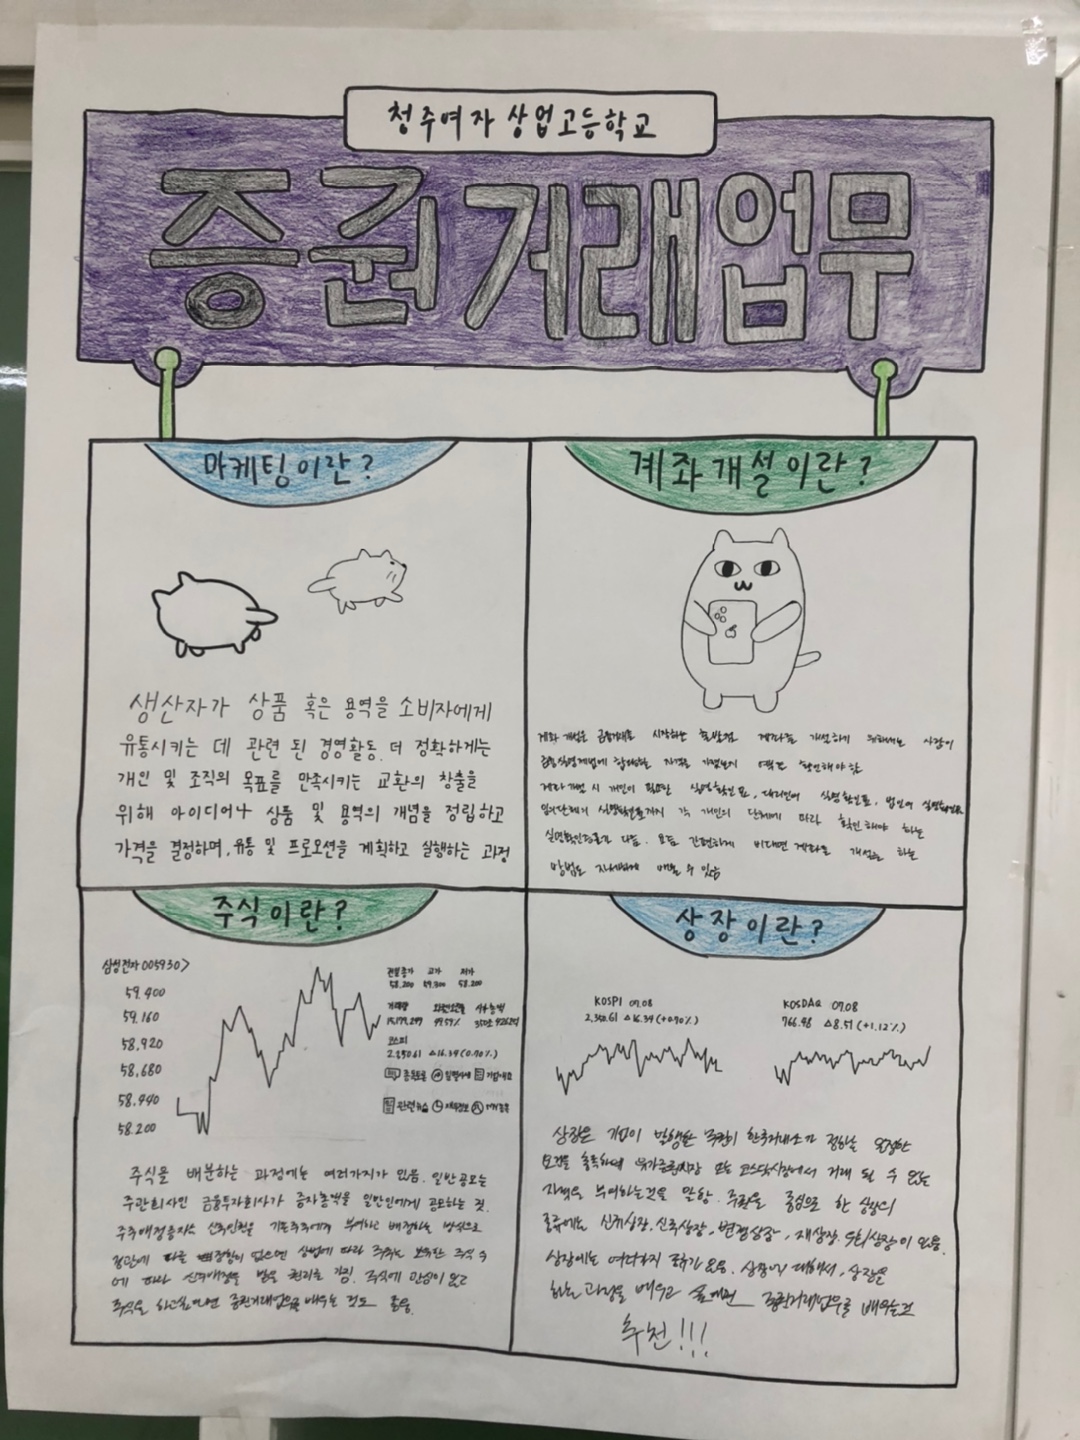 청주여자상업고등학교
증권거래업무
마케팅이란?
생산자가 상품 혹은 용역을 소비자에게
유통시키는 데 관련 된 경영활동. 더 정확하게는
개인 및 조직의 목표를 만족시키는 교환의 창출을
위해 아이디어나 상품 및 용역의 개념을 정립하고
가격을 결정하며, 유통 및 프로모션을 계획하고 실행하는 과정
계좌개설이란?
계좌 개설은 금융거래를 시작하는 출발점 계좌를 개설하기 위해서는 사람이
금융실명제법에 합당하는 자격을 가졌는지 먼저 확인해야 함
계좌개설 시 개인이 필요한 실명확인표, 대리인의 실명확인표, 법인의 실명확인표
임의단체의 실명확인표까지 각 개인의 단체에 따라 확인해야 하는
실명확인증표가 다름. 요즘 간편하게 비대면 계좌를 개설을 하는
방법도 자세하게 배울 수 있음
주식이란?
삼성전자 005930>
59.400
59.160
58.920
58.680
58.440
58.200
전일종가 고가 저가
58.200 59.400 58.200
거래량 시가총액
코스피
2.350.61 △16.39(0.70%)
종목토론 일별시세 기업개요
관련뉴스
주식을 배분하는 과정에는 여러가지가 있음. 일반공모는
주관회사인 금융투자회사가 증자총액을 일반인에게 공모하는 것.
주주배정증자는 신주인권을 기존주주에게 부여하고 배정하는 방식으로
정관에 따로 없으면 상법에 따라 주주는 보유한 주식 수
에 따라 신주배정을 받을 권리를 가짐. 주식에 관심이 있고
주식을 하고싶다면 증권거래업무를 배우는 것도 좋음
상장이란?
KOSPI 07.08
2.350.61 △16.39(+0.70%)
KOSDAQ 07.08
766.48 △8.51(+1.12%)
상장은 기업이 발행한 주권이 한국거래소가 정하는 일정한
요건을 충족하여 유가증권시장 또는 코스닥시장에서 거래 될 수 있는
자격을 부여하는것을 말함. 주권을 중심으로 한 상장의
종류에는 신규상장, 신주상장, 변경상장, 재상장, 우회상장이 있음.
상장에는 여러가지 종류가 있음. 상장에 대해서, 상장을
하는 과정을 배우고 싶다면 증권거래업무를 배우는것
추천!!!